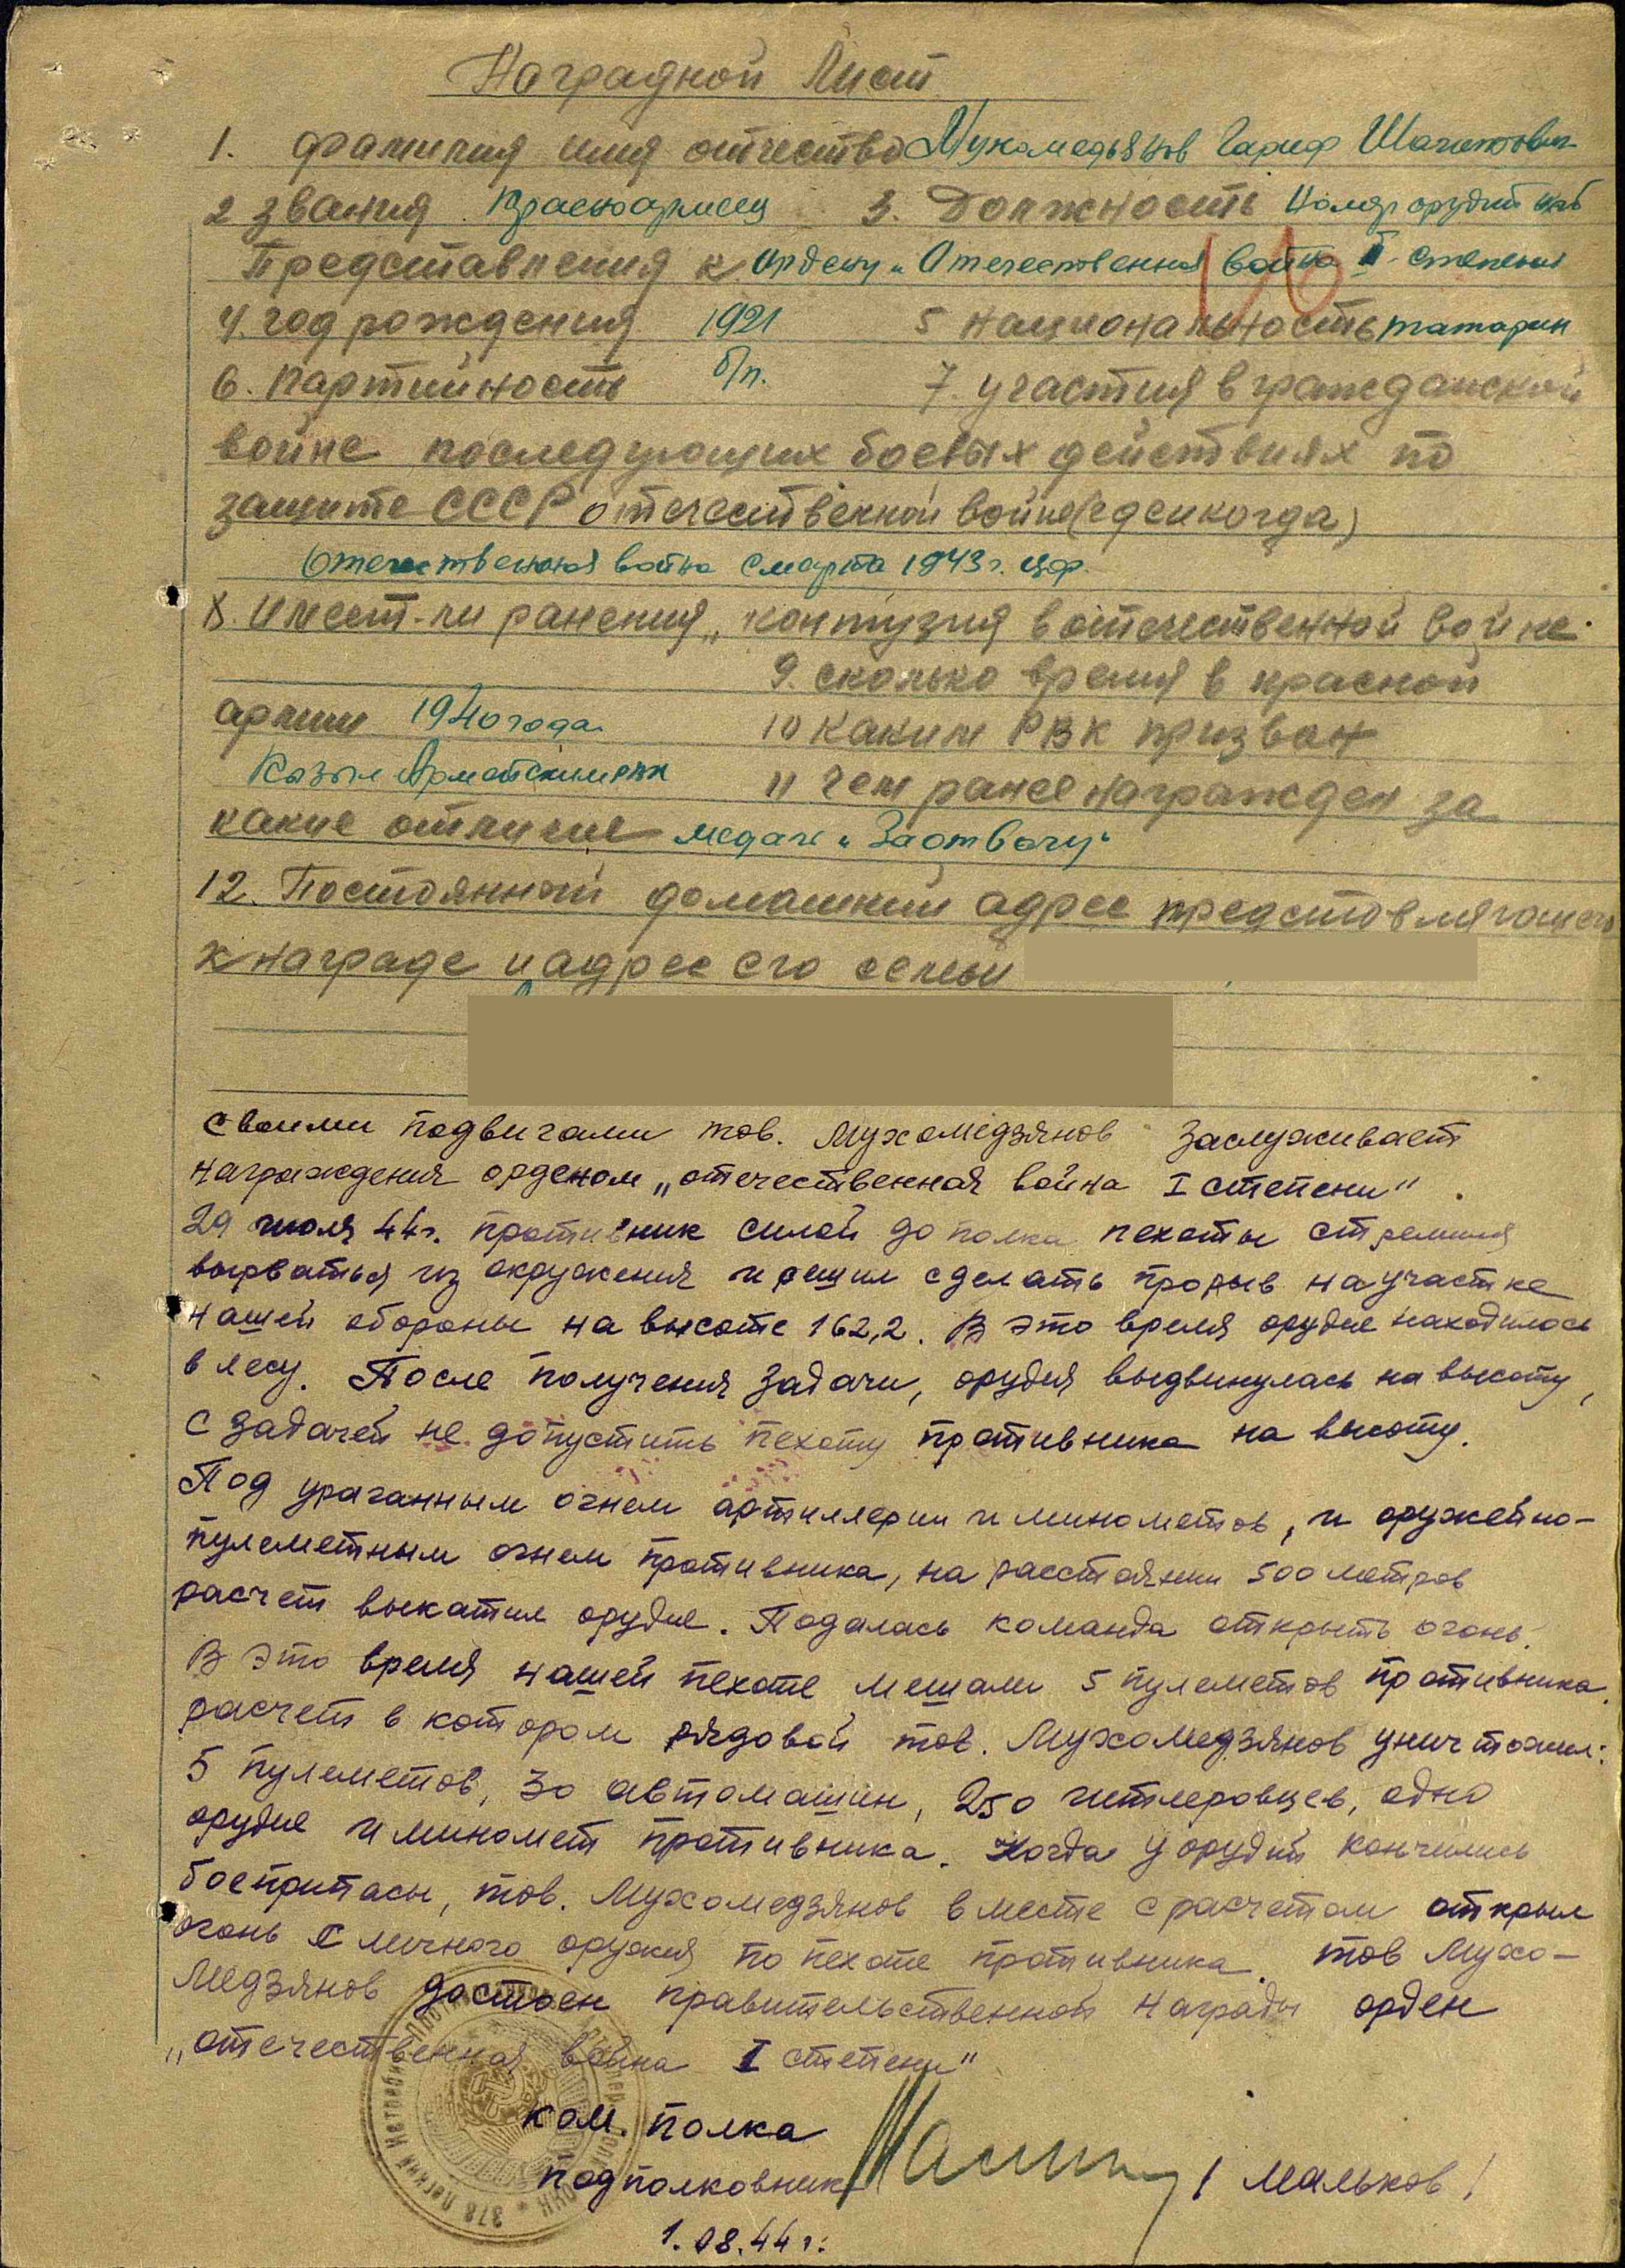 Наградной Лист
1. фамилия имя отчество Мухамедьянов Гариф
2 звания Красноармеец 3. Должность Номер орудий
Представления к ордену „Отечественная война I степени
4. год рождения 1921 5 национальность татарин
6. партийность б/п. 7. участия в гражданской
войне последующих боевых действиях по
защите СССР отечественной войне (где и когда)
Отечественная война с марта 1943 г.
8. имеет-ли ранения, контузия в отечественной войне
9. сколько время в красной
армии 1940 года. 10 Каким РВК призван
Кызыл Армейским РВК 11 чем ранее награжден за
какие отличие медаль „За отвагу"
12. Постоянный домашний адрес представляющего
к награде и адрес его семьи
своими подвигами тов. Мухамедзянов заслуживает
награждения орденом „отечественная война I степени".
29 июля 44 г. противник силой до полка пехоты стремился
вырваться из окружения и решил сделать прорыв на участке
нашей обороны на высоте 162,2. В это время орудие находилось
в лесу. После получения задачи, орудия выдвинулась на высоту,
с задачей не допустить пехоту противника на высоту.
Под ураганным огнем артиллерии и минометов, и оружейно-
пулеметным огнем противника, на расстоянии 500 метров
расчет выкатил орудие. Подалась команда открыть огонь.
В это время нашей пехоте мешали 5 пулеметов противника.
расчет в котором рядовой тов. Мухамедзянов уничтожил:
5 пулеметов, 30 автомашин, 250 гитлеровцев, одно
орудие и миномет противника. Когда у орудий кончились
боеприпасы, тов. Мухамедзянов вместе с расчетом открыл
огонь с личного оружия по пехоте противника. тов Мухо-
медзянов достоен правительственной награды орден
„отечественная война I степени"
ком. полка
подполковник / Мальков /
1.08.44 г.